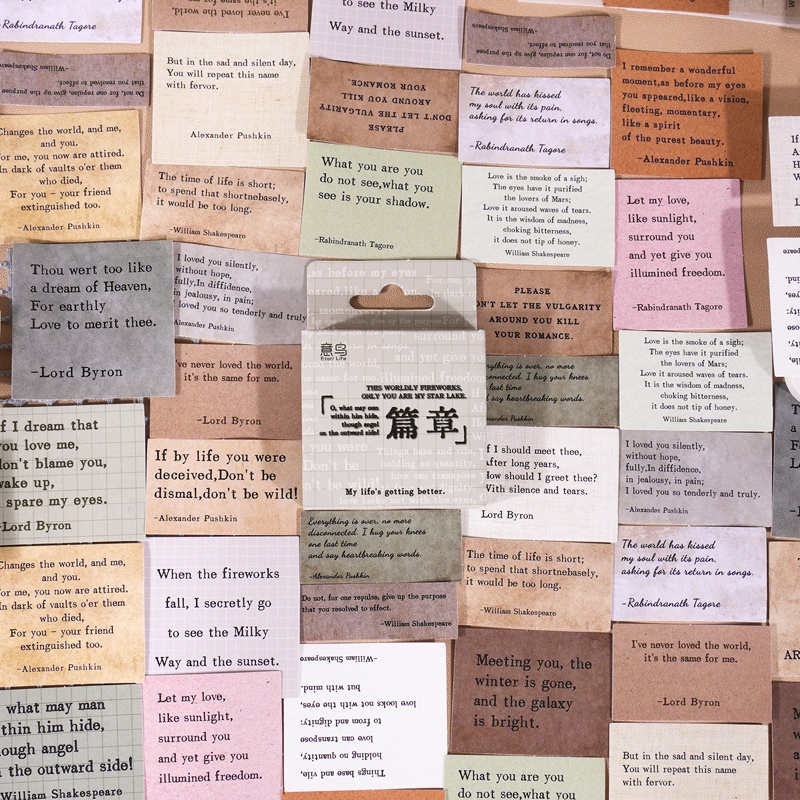 -Rabindranath Tagore
I've never loved the world,
it's the same for me.
to see the Milky
Way and the sunset.
Do not, for one repulse, give up the purpose
that you resolved to effect.
-William Shakespeare
Do not, for one repulse, give up the purpose
that you resolved to effect.
-William Shakespeare
But in the sad and silent day,
You will repeat this name
with fervor.
Alexander Pushkin
PLEASE
DON'T LET THE VULGARITY
AROUND YOU KILL
YOUR ROMANCE.
The world has kissed
my soul with its pain,
asking for its return in songs.
-Rabindranath Tagore
I remember a wonderful
moment,as before my eyes
you appeared,like a vision,
fleeting, momentary,
like a spirit
of the purest beauty.
-Alexander Pushkin
Changes the world, and me,
and you.
For me, you now are attired.
In dark of vaults o'er them
who died,
For you – your friend
extinguished too.
-Alexander Pushkin
The time of life is short;
to spend that shortnebasely,
it would be too long.
-William Shakespeare
What you are you
do not see,what you
see is your shadow.
-Rabindranath Tagore
Love is the smoke of a sigh;
The eyes have it purified
the lovers of Mars;
Love it aroused waves of tears.
It is the wisdom of madness,
choking bitterness,
it does not tip of honey.
William Shakespeare
Let my love,
like sunlight,
surround you
and yet give you
illumined freedom.
-Rabindranath Tagore
Thou wert too like
a dream of Heaven,
For earthly
Love to merit thee.
-Lord Byron
I loved you silently,
without hope,
fully,In diffidence,
in jealousy, in pain;
I loved you so tenderly and truly
Alexander Pushkin
PLEASE
ON'T LET THE VULGARITY
AROUND YOU KILL
YOUR ROMANCE.
I've never loved the world,
it's the same for me.
-Lord Byron
意鸟
Etori Life
THIS WORLDLY FIREWORKS,
ONLY YOU ARE MY STAR LAKE.
O, what may man
within him hide,
though angel
on the outward side!
「篇章」
My life's getting better.
everything is over, no more
disconnected. I hug your knees
last time
and say heartbreaking words.
-Alexander Pushkin
Love is the smoke of a sigh;
The eyes have it purified
the lovers of Mars;
Love it aroused waves of tears.
It is the wisdom of madness,
choking bitterness,
it does not tip of honey.
William Shakespeare
If I dream that
you love me,
don't blame you,
wake up,
spare my eyes.
Lord Byron
If by life you were
deceived,Don't be
dismal,don't be wild!
-Alexander Pushkin
If I should meet thee,
After long years,
How should I greet thee?
With silence and tears.
Lord Byron
I loved you silently,
without hope,
fully,In diffidence,
in jealousy, in pain;
I loved you so tenderly and truly.
-Alexander Pushkin
Changes the world, and me,
and you.
For me, you now are attired.
In dark of vaults o'er them
who died,
For you – your friend
extinguished too.
-Alexander Pushkin
When the fireworks
fall, I secretly go
to see the Milky
Way and the sunset.
Everything is over, no more
disconnected. I hug your knees
one last time
and say heartbreaking words.
-Alexander Pushkin
Do not, for one repulse, give up the purpose
that you resolved to effect.
-William Shakespeare
The time of life is short;
to spend that shortnebasely,
it would be too long.
-William Shakespeare
The world has kissed
my soul with its pain,
asking for its return in songs.
-Rabindranath Tagore
what may man
within him hide,
though angel
the outward side!
William Shakespeare
Let my love,
like sunlight,
surround you
and yet give you
illumined freedom.
Things base and vile,
holding no quantity,
love can transpose
to from and dignity:
love looks not with the eyes,
but with mind.
-William Shakespeare
Meeting you, the
winter is gone,
and the galaxy
is bright.
I've never loved the world,
it's the same for me.
-Lord Byron
What you are you
do not see,what you
But in the sad and silent day,
You will repeat this name
with fervor.